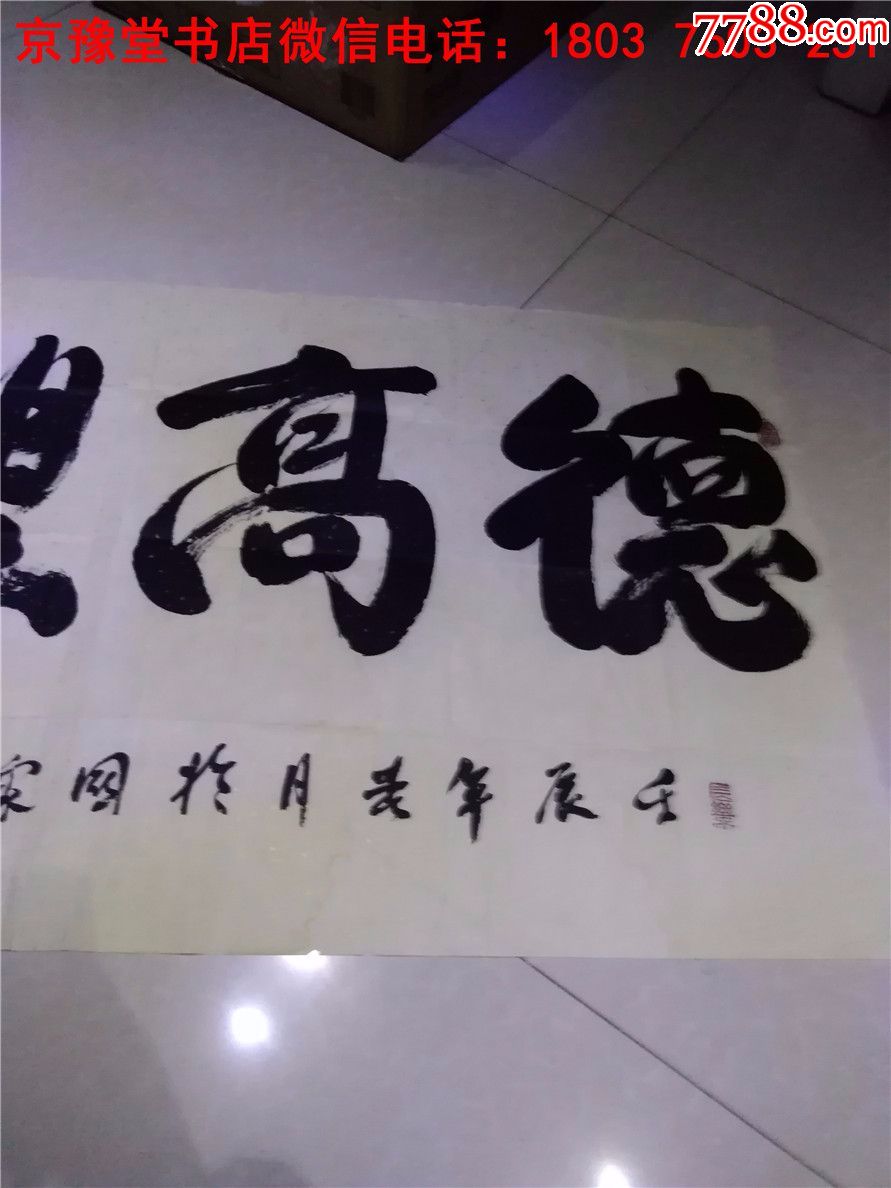 京豫堂书店微信电话：1803 7
7788.com
德高望
壬辰年
月於国家